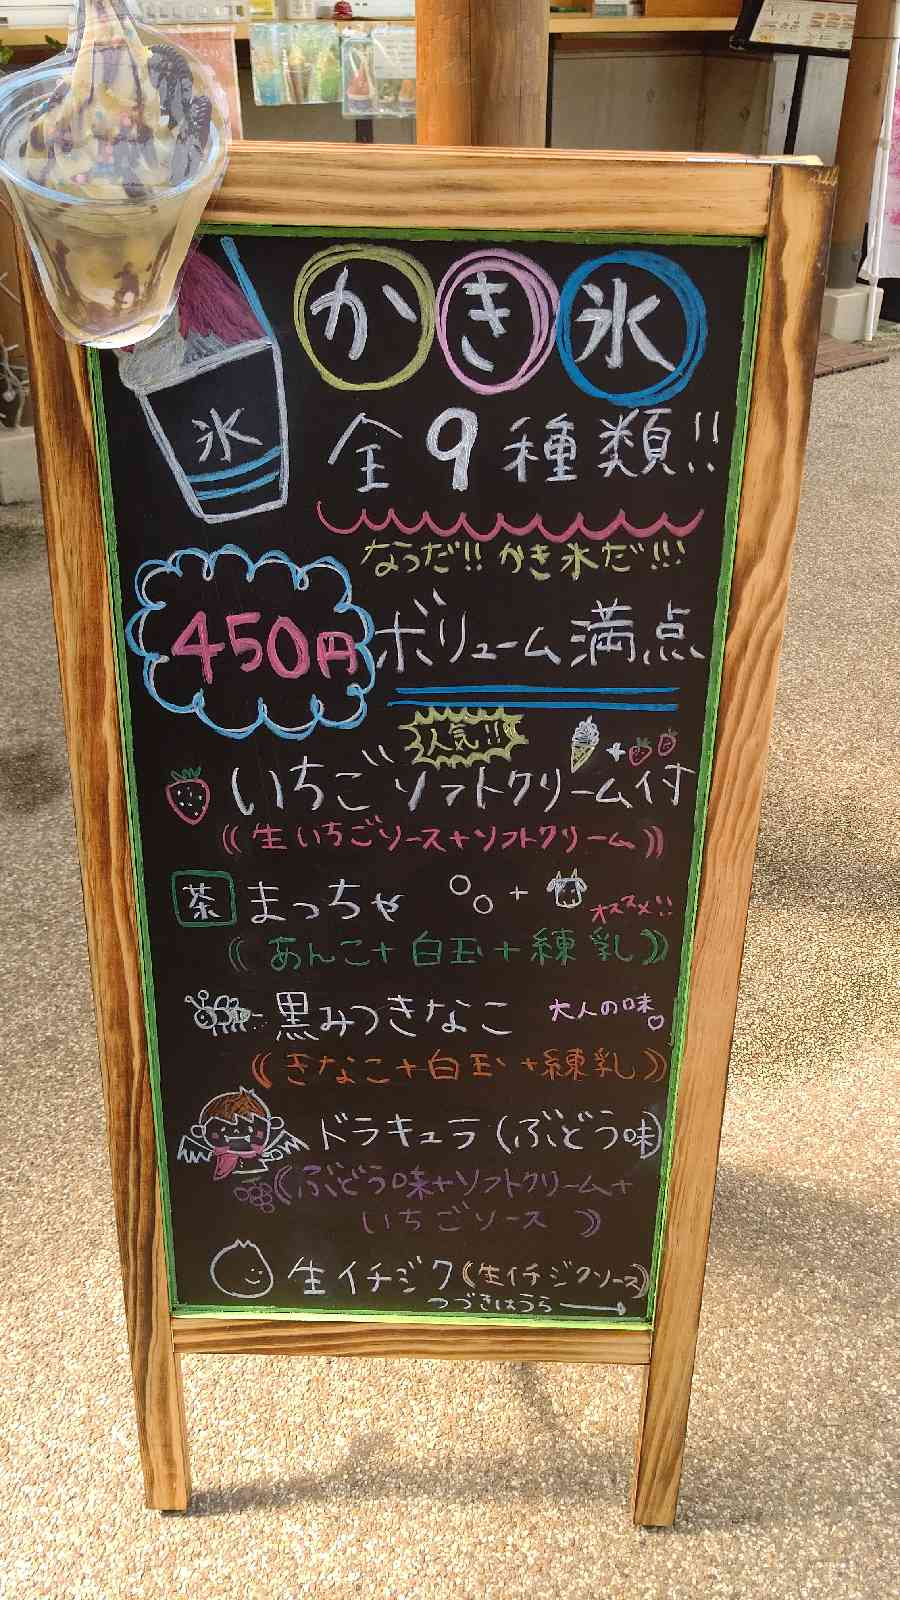 かき氷
氷
全9種類!!
なつだ!! かき氷だ!!!
450円 ボリューム満点
人気!!
+
いちごソフトクリーム付
((生いちごソース+ソフトクリーム))
茶 まっちゃ + オススメ!!
((あんこ+白玉+練乳))
黒みつきなこ 大人の味
((きなこ+白玉+練乳))
ドラキュラ(ぶどう味)
((ぶどう味+ソフトクリーム+
いちごソース))
生イチジク((生イチジクソース))
つづきはうら→